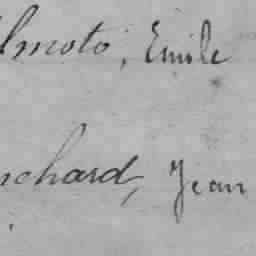 lmoto, Emile
nchard, Jean